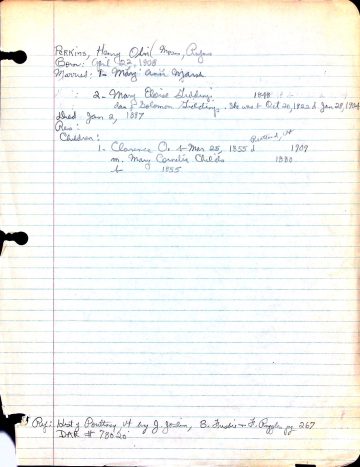 PERKINS, Henry Olin ( Moses, Rufus
Born: April 22, 1908
Married: 1- Mary Ann Marsh
2- Mary Eloise Giddings 1848
dau of Solomon Giddings. She was b Oct 20, 1822 d Jan 28, 1904
died Jan 2, 1887
Res:
Children:
Rutland, Vt
1- Clarence O. b Mar 25, 1855 d 1909
m. Mary Childs 1880
b 1855
Ref: Hist of Poultney, Vt by J. Joslin, B. Frisbie & F. Ruggles pg 267
DAR # 78020